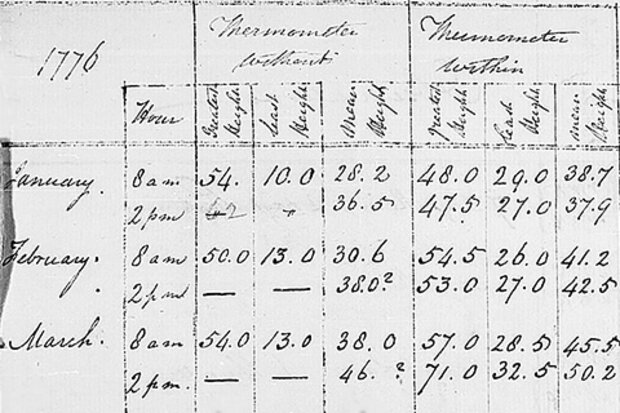 1776 Thermometer without Thermometer within
Hour Greatest Height Least Height Mean Height Greatest Height Least Height Mean Height
January. 8 am 54. 10.0 28.2 48.0 29.0 38.7
2 pm 36.5 47.5 27.0 37.9
February. 8 am 50.0 13.0 30.6 54.5 26.0 41.2
2 pm — — 38.0? 53.0 27.0 42.5
March. 8 am 54.0 13.0 38.0 57.0 28.5 45.5
2 pm. — — 46.? 71.0 32.5 50.2